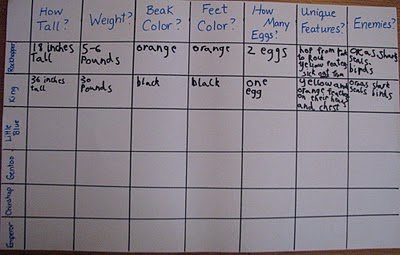 How Tall?
Weight?
Beak Color?
Feet Color?
How Many Eggs?
Unique Features?
Enemies?
Rockhopper
18 inches Tall
5-6 Pounds
orange
orange
2 eggs
hop from
to Rock
yellow
birds
King
36 inches tall
30 Pounds
black
black
one egg
yellow and
orange
on their
and chest
seals birds
Little Blue
Gentoo
Chinstrap
Emperor